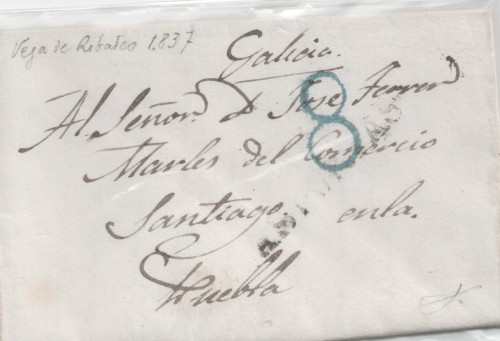 Vega de Ribadeo 1.837
Galicia.
Al Señor D Jose Ferrer
8
Martes del Comercio
Santiago. en la.
Puebla